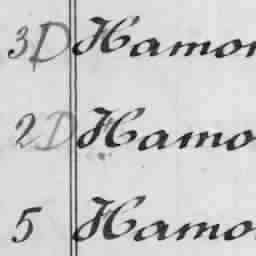 3D Hamon
2D Hamo
5 Hamo